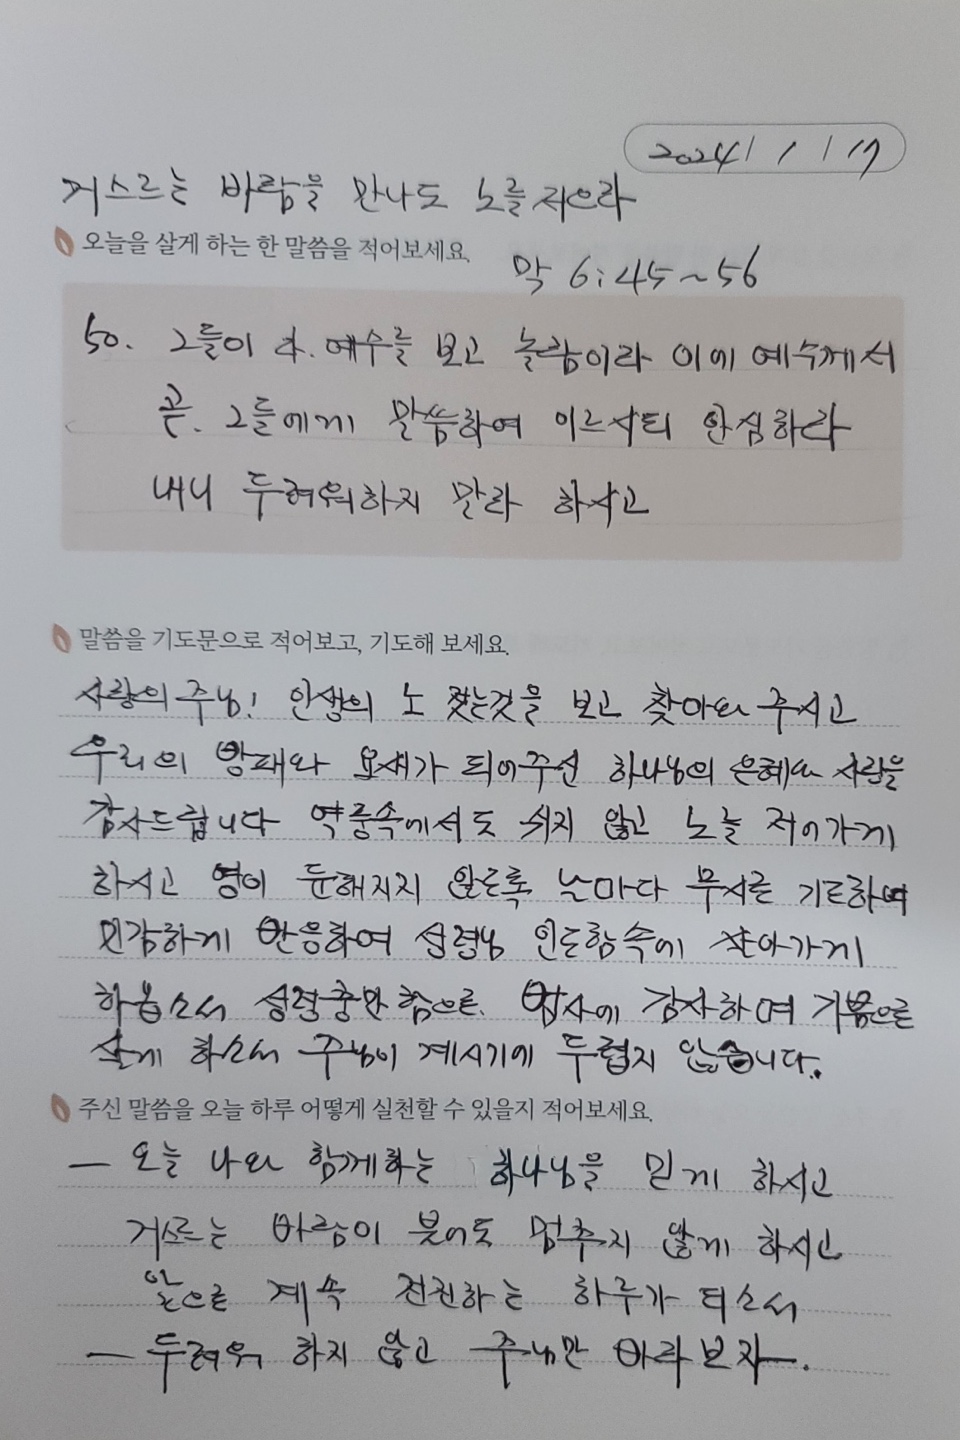 2024 / 1 / 17
거스르는 바람을 만나도 노를 저으라
오늘을 살게 하는 한 말씀을 적어보세요.
막 6:45~56
50. 그들이 다. 예수를 보고 놀람이라 이에 예수께서
곧. 그들에게 말씀하여 이르시되 안심하라
내니 두려워하지 말라 하시고
말씀을 기도문으로 적어보고, 기도해 보세요.
사랑의 주님! 인생의 노 젓는것을 보고 찾아와 주시고
우리의 방패와 요새가 되어주신 하나님의 은혜와 사랑을
감사드립니다 역풍속에서도 쉬지 않고 노늘 저어가게
하시고 영이 둔해지지 않도록 날마다 무시로 기도하여
민감하게 반응하여 성령님 인도함속에 살아가게
하옵소서 성령충만함으로. 범사에 감사하며 기쁨으로
살게 하소서 주님이 계시기에 두렵지 않습니다.
주신 말씀을 오늘 하루 어떻게 실천할 수 있을지 적어보세요.
— 오늘 나와 함께하는 하나님을 믿게 하시고
거스르는 바람이 불어도 멈추지 않게 하시고
앞으로 계속 전진하는 하루가 되소서
— 두려워 하지 않고 주님만 바라보자—.